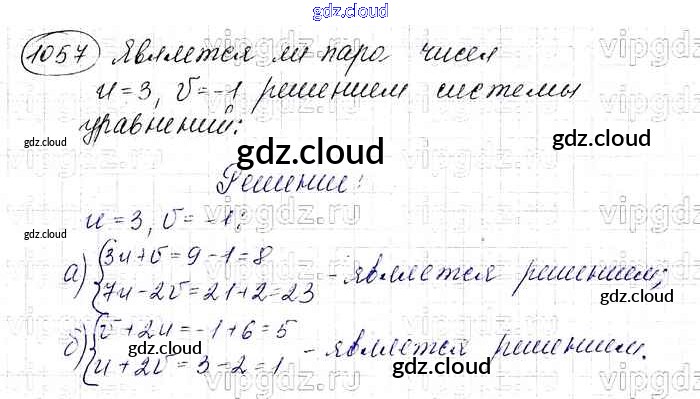 gdz.cloud
1057 Является ли пара чисел
u=3, v=-1 решением системы
уравнений:
gdz.cloud
gdz.cloud
gdz.cloud
Решение:
u=3, v=-1;
gdz.cloud
а) {3u+v=9-1=8
7u-2v=21+2=23 - является решением;
gdz.cloud
б) {v+2u=-1+6=5
u+2v=3-2=1 - является решением.
gdz.cloud
gdz.cloud
gdz.cloud
vipgdz.ru